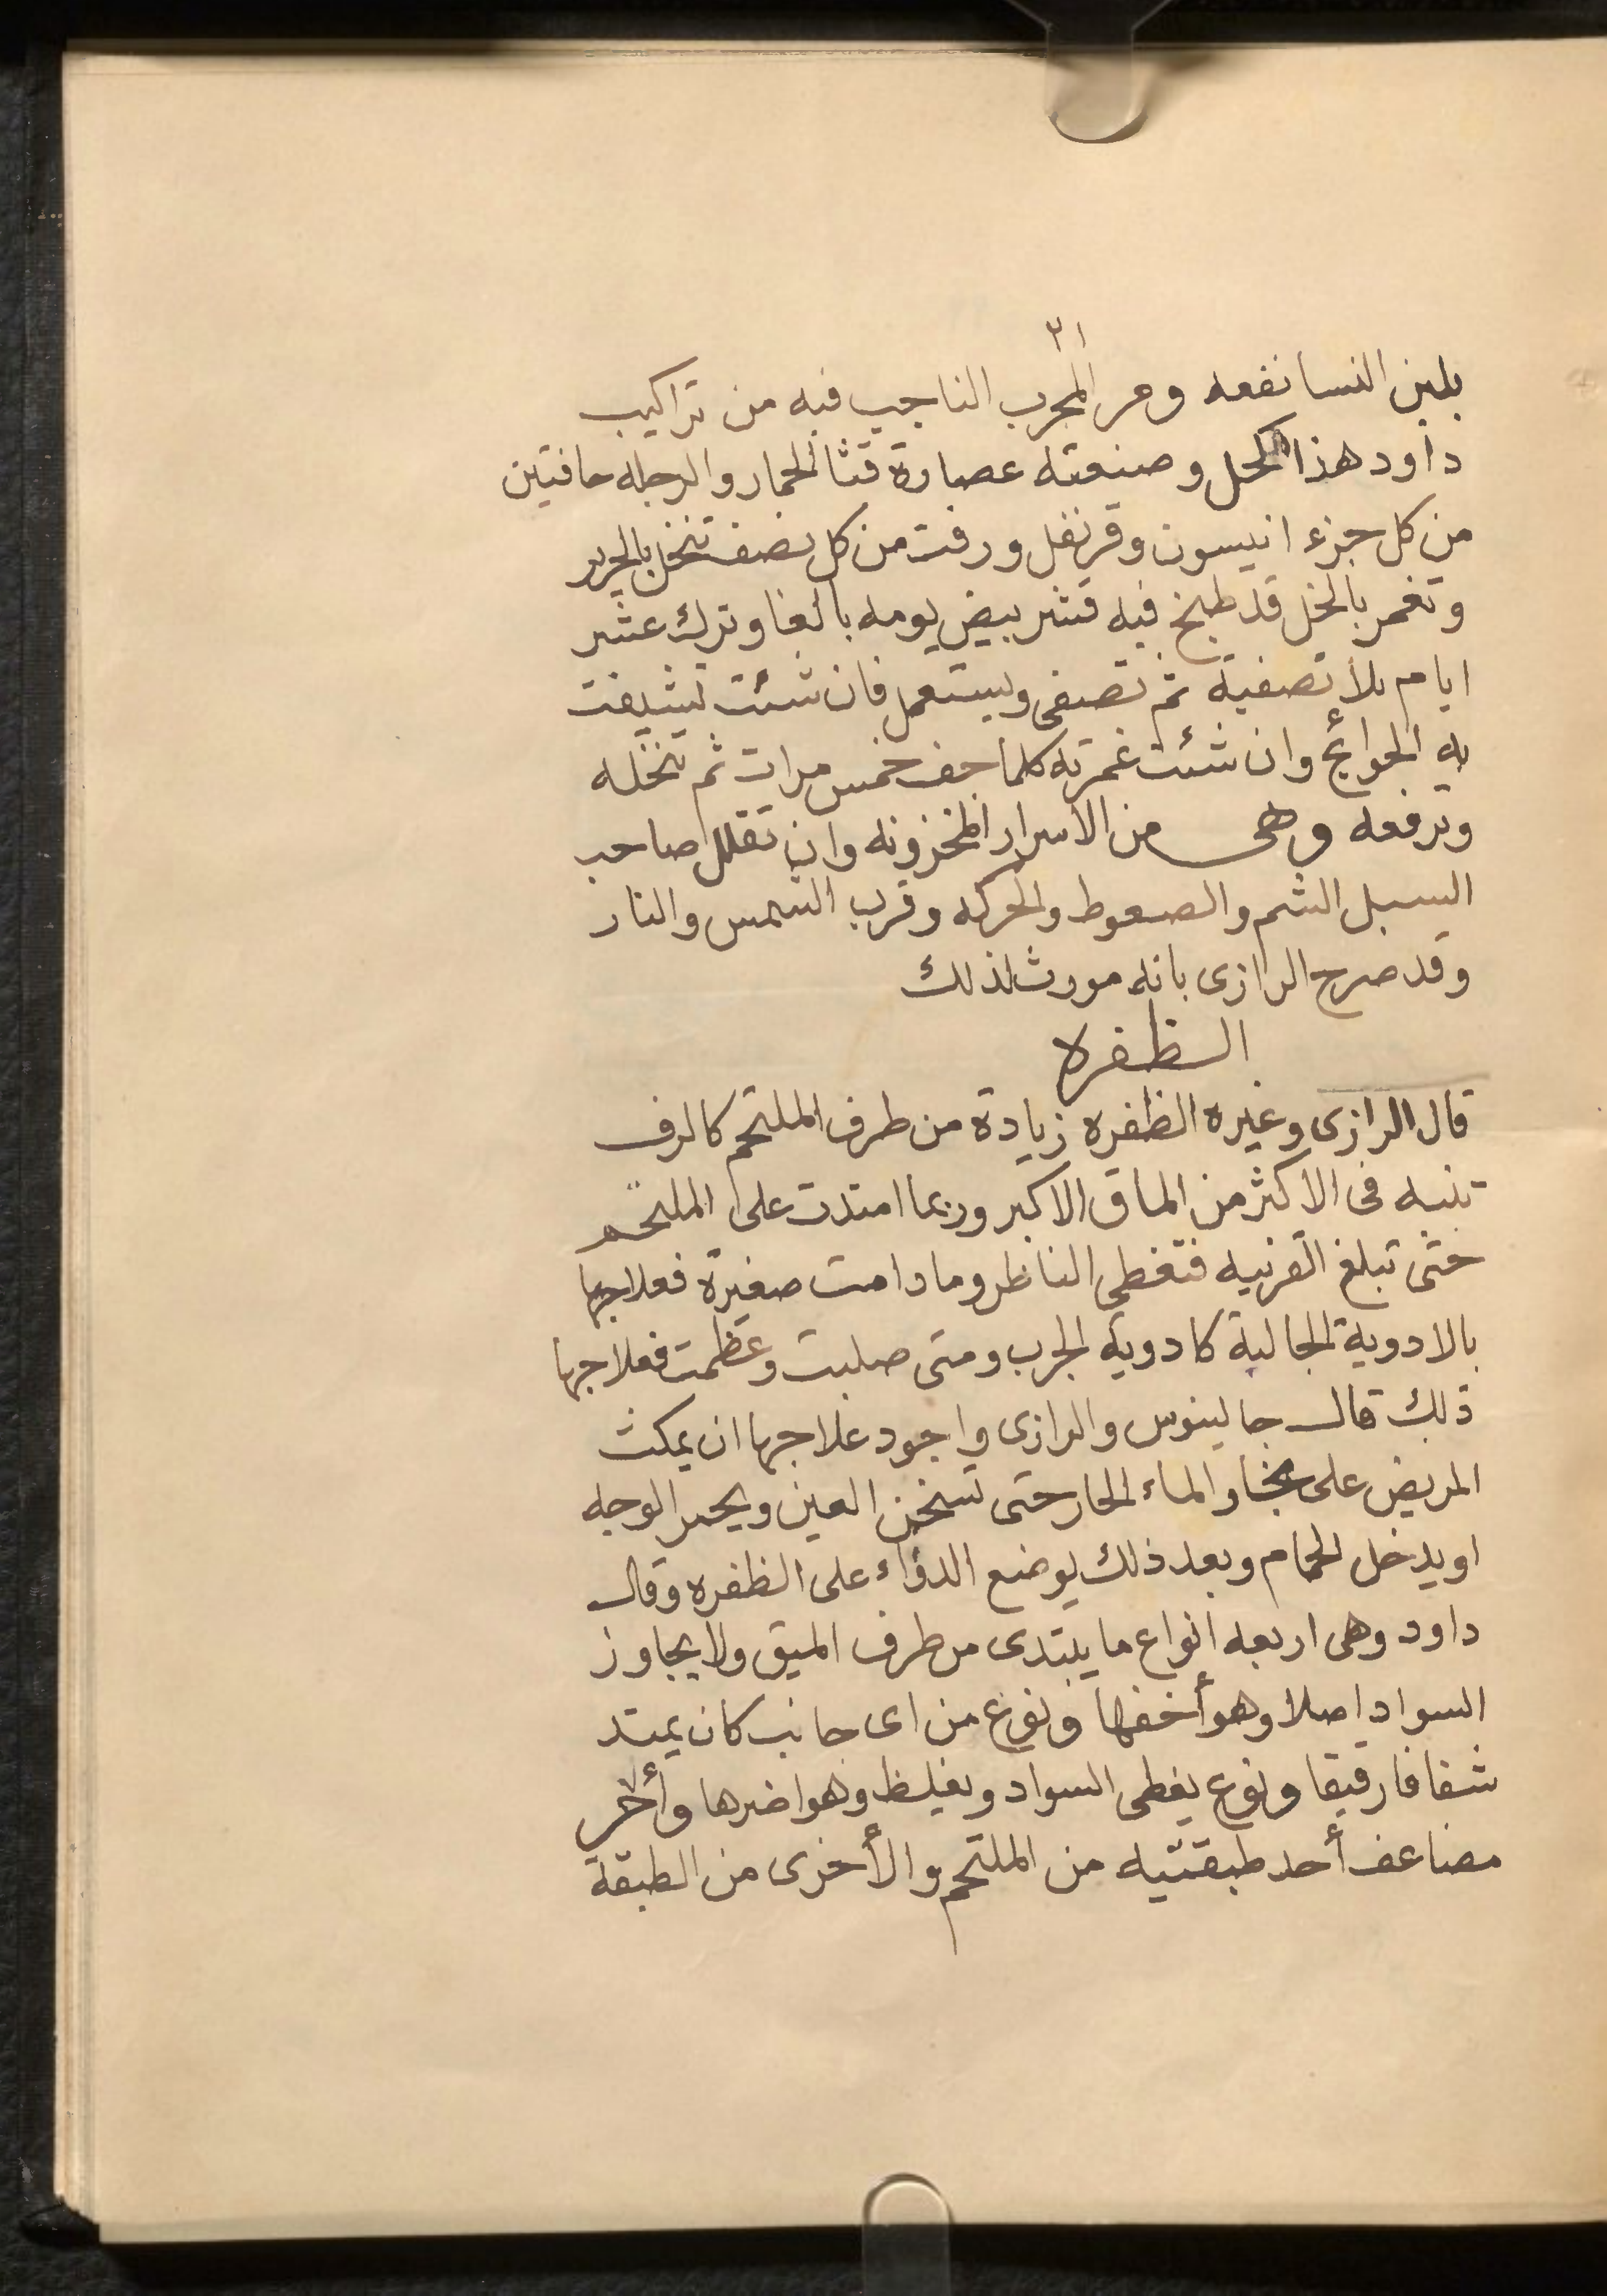 ٢١
بلبن النسا نفعه ومر المجرب الناجب فيه من تراكيب
داود هذا الكحل وصنعته عصارة قثا الحمار والرجله حافتين
من كل جزء انيسون وقرنفل ورفت من كل نصف تنخل بالحرير
وتغمر بالخل قد طبخ فيه قشر بيض يومه بالغا وترك عشر
ايام بلا تصفية ثم تصفى ويستعمل فان شئت تشيفت
به الحوائج وان شئت غمرته كلما جف خمس مرات ثم تنخله
وترفعه وهى من الاسرار المخزونه وان تقلل صاحب
السبل الشم والصعوط والحركه وقرب الشمس والنار
وقد صرح الرازى بانه مورث لذلك
الظفره
قال الرازى وغيره الظفره زيادة من طرف الملتحم كالرف
تنبه فى الاكثر من الماق الاكبر وربما امتدت على الملتحم
حتى تبلغ القرنيه فتغطى الناظر وما دامت صغيرة فعلاجها
بالادوية الجالية كادوية الجرب ومتى صلبت وعظمت فعلاجها
ذلك قال جالينوس والرازى واجود علاجها ان يمكث
المريض على بخار الماء الحار حتى تسخن العين ويحمر الوجه
او يدخل الحمام وبعد ذلك يوضع الدواء على الظفره وقال
داود وهى اربعه انواع ما يبتدى من طرف الميق ولا يجاوز
السواد اصلا وهو أخفها ونوع من اى جانب كان يمتد
شفافا رقيقا ونوع يغطى السواد ويغلظ وهو اضرها وألاخر
مضاعف أحد طبقتيه من الملتحم والأخرى من الطبقة